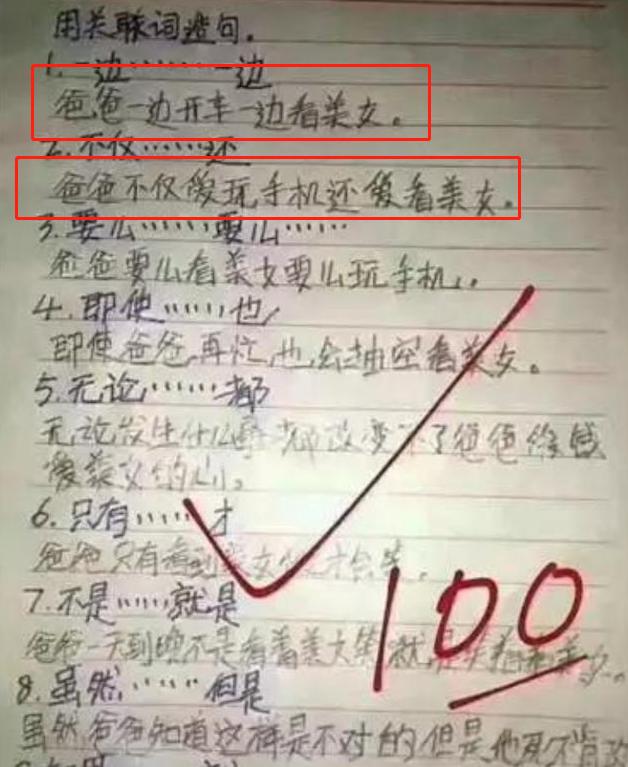 用关联词造句。
1.一边……一边
爸爸一边开车一边看美女。
2.不仅……还
爸爸不仅爱玩手机还爱看美女。
3.要么……要么……
爸爸要么看美女要么玩手机。
4.即使……也
即使爸爸再忙,也会抽空看美女。
5.无论……都
无论发生什么事都改变不了爸爸
爱美女的心。
6.只有……才
爸爸只有看到美女才会笑。
7.不是……就是
爸爸一天到晚不是看着美女笑就是美女。
100
8.虽然……但是
虽然爸爸知道这样是不对的但是他死不肯改